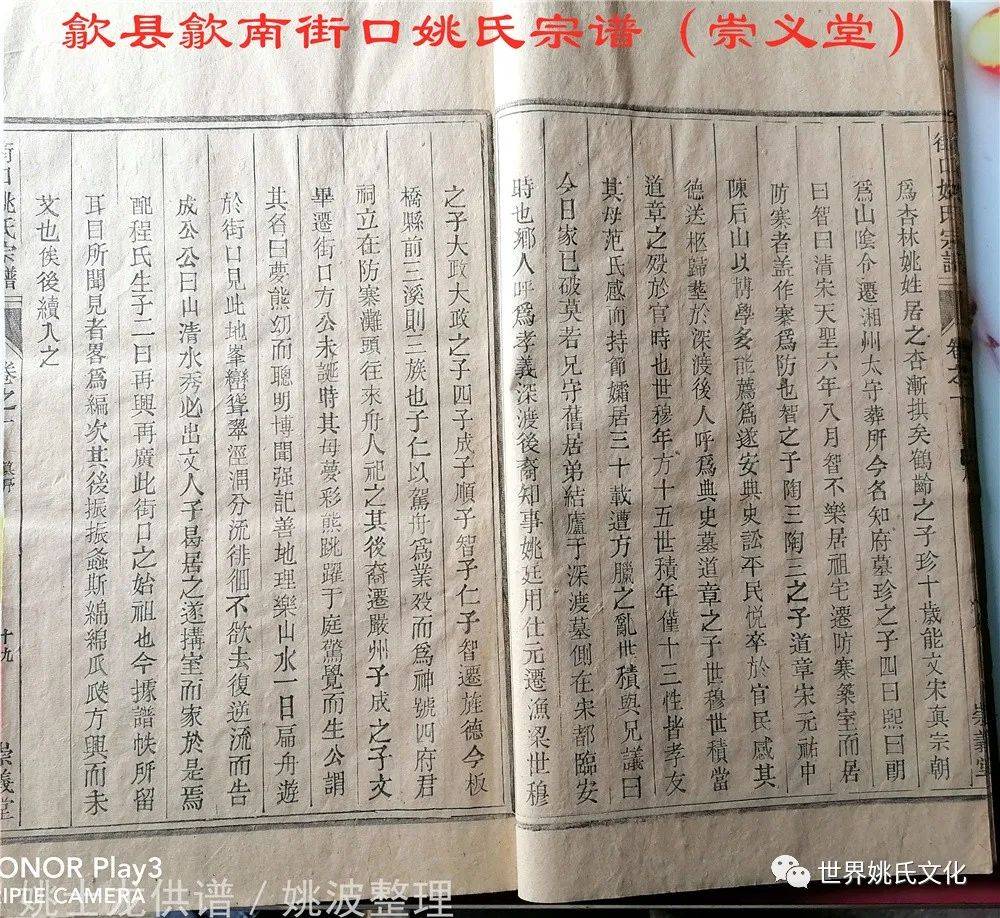 歙县歙南街口姚氏宗谱（崇义堂）
街口姚氏宗譜
卷之一
崇義堂
爲杏林姚姓居之杏漸拱矣鶴齡之子珍十歲能文宋真宗朝
爲山陰令遷湘州太守葬所今名知府墓珍之子四曰熙曰明
曰智曰清宋天聖六年八月智不樂居祖宅遷防寨築室而居
防寨者盖作寨爲防也智之子陶三陶三之子道章宋元祐中
陳后山以博學多能薦爲遂安典史訟平民悦卒於官民感其
德送柩歸塟於深渡後人呼爲典史墓道章之子世穆世積當
道章之殁於官時也世穆年方十五世積年僅十三性皆孝友
其母范氏感而持節孀居三十載遭方臘之亂世積與兄議曰
今日家已破莫若兄守舊居弟結廬于深渡墓側在宋都臨安
時也鄉人呼爲孝義深渡後裔知事姚廷用仕元遷漁梁世穆
之子大政大政之子四子成子順子智子仁子智遷旌德今板
橋縣前三溪則三族也子仁以駕舟爲業殁而爲神號四府君
祠立在防寨灘頭往來舟人祀之其後裔遷嚴州子成之子文
畢遷街口方公未誕時其母夢彩熊跳躍于庭驚覺而生公謂
其爸曰夢熊幼而聰明博聞强記善地理樂山水一日扁舟遊
於街口見此地峯巒聳翠涇澗分流徘徊不欲去復逆流而告
成公公曰山清水秀必出文人子曷居之遂搆室而家於是焉
配程氏生子二曰再興再廣此街口之始祖也今據譜帙所留
耳目所聞見者畧爲編次其後振振螽斯綿綿瓜瓞方興而未
艾也俟後續入之
街口姚氏宗譜
卷之一
十九
崇義堂
HONOR Play3
TRIPLE CAMERA
供谱 / 姚波整理
世界姚氏文化